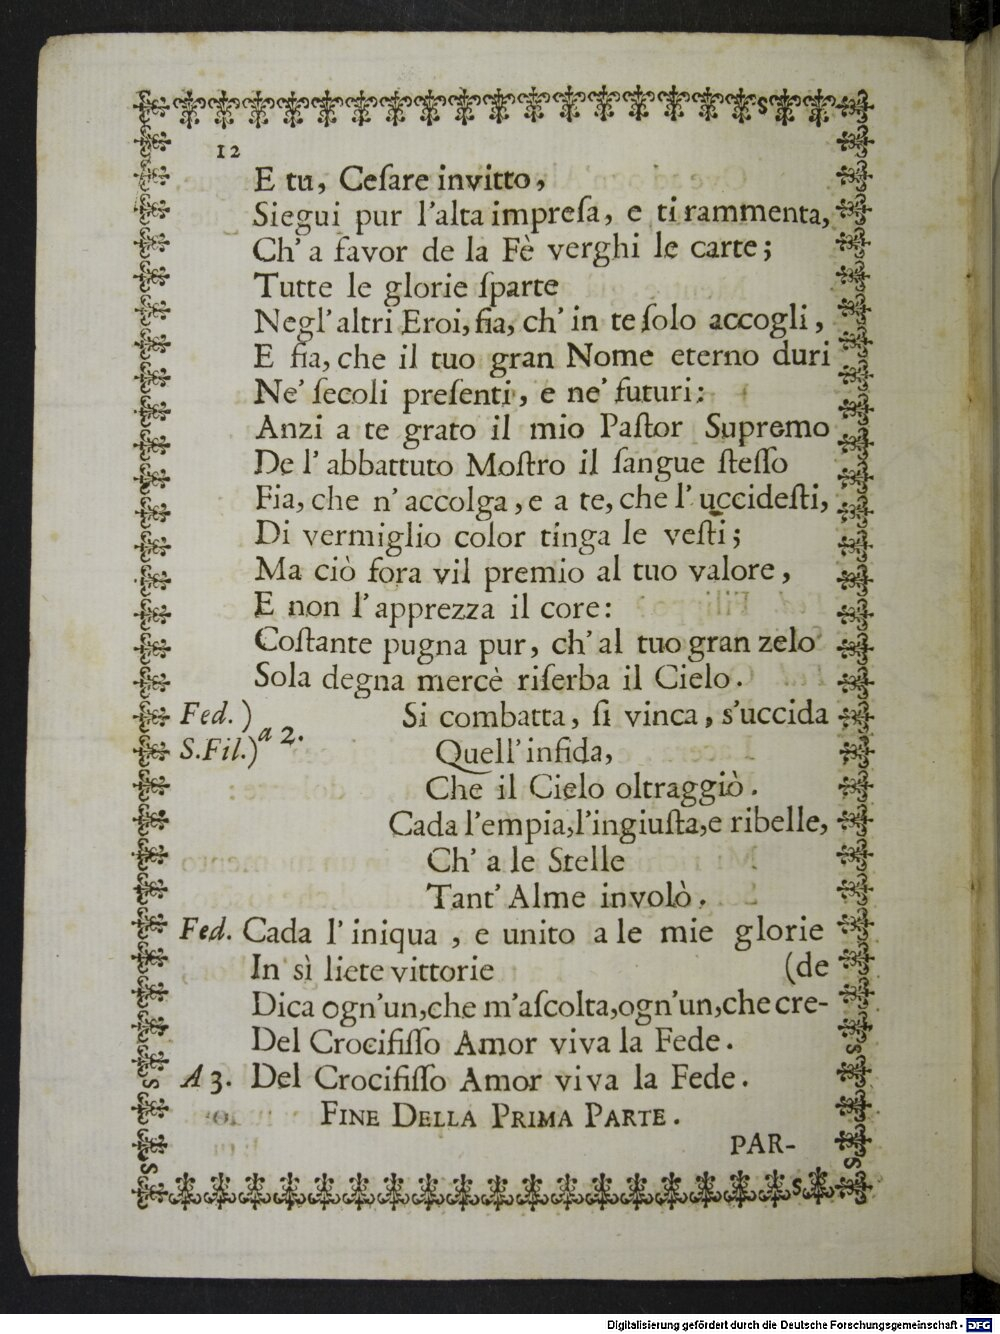 12
E tu, Ceſare invitto,
Siegui pur l'alta impreſa, e ti rammenta,
Ch' a favor de la Fè verghi le carte;
Tutte le glorie ſparte
Negl' altri Eroi, fia, ch' in te ſolo accogli,
E fia, che il tuo gran Nome eterno duri
Ne' ſecoli preſenti, e ne' futuri:
Anzi a te grato il mio Paſtor Supremo
De l' abbattuto Moſtro il ſangue ſteſſo
Fia, che n' accolga, e a te, che l' uccideſti,
Di vermiglio color tinga le veſti;
Ma ciò fora vil premio al tuo valore,
E non l'apprezza il core:
Coſtante pugna pur, ch' al tuo gran zelo
Sola degna mercè riſerba il Cielo.
Fed.) Si combatta, ſi vinca, s'uccida
S.Fil.) a 2. Quell' infida,
Che il Cielo oltraggiò.
Cada l'empia, l'ingiuſta, e ribelle,
Ch' a le Stelle
Tant' Alme involò.
Fed. Cada l' iniqua, e unito a le mie glorie
In sì liete vittorie (de
Dica ogn'un, che m'aſcolta, ogn'un, che cre-
Del Crocifiſſo Amor viva la Fede.
A 3. Del Crocifiſſo Amor viva la Fede.
FINE DELLA PRIMA PARTE.
PAR-
Digitalisierung gefördert durch die Deutsche Forschungsgemeinschaft - DFG